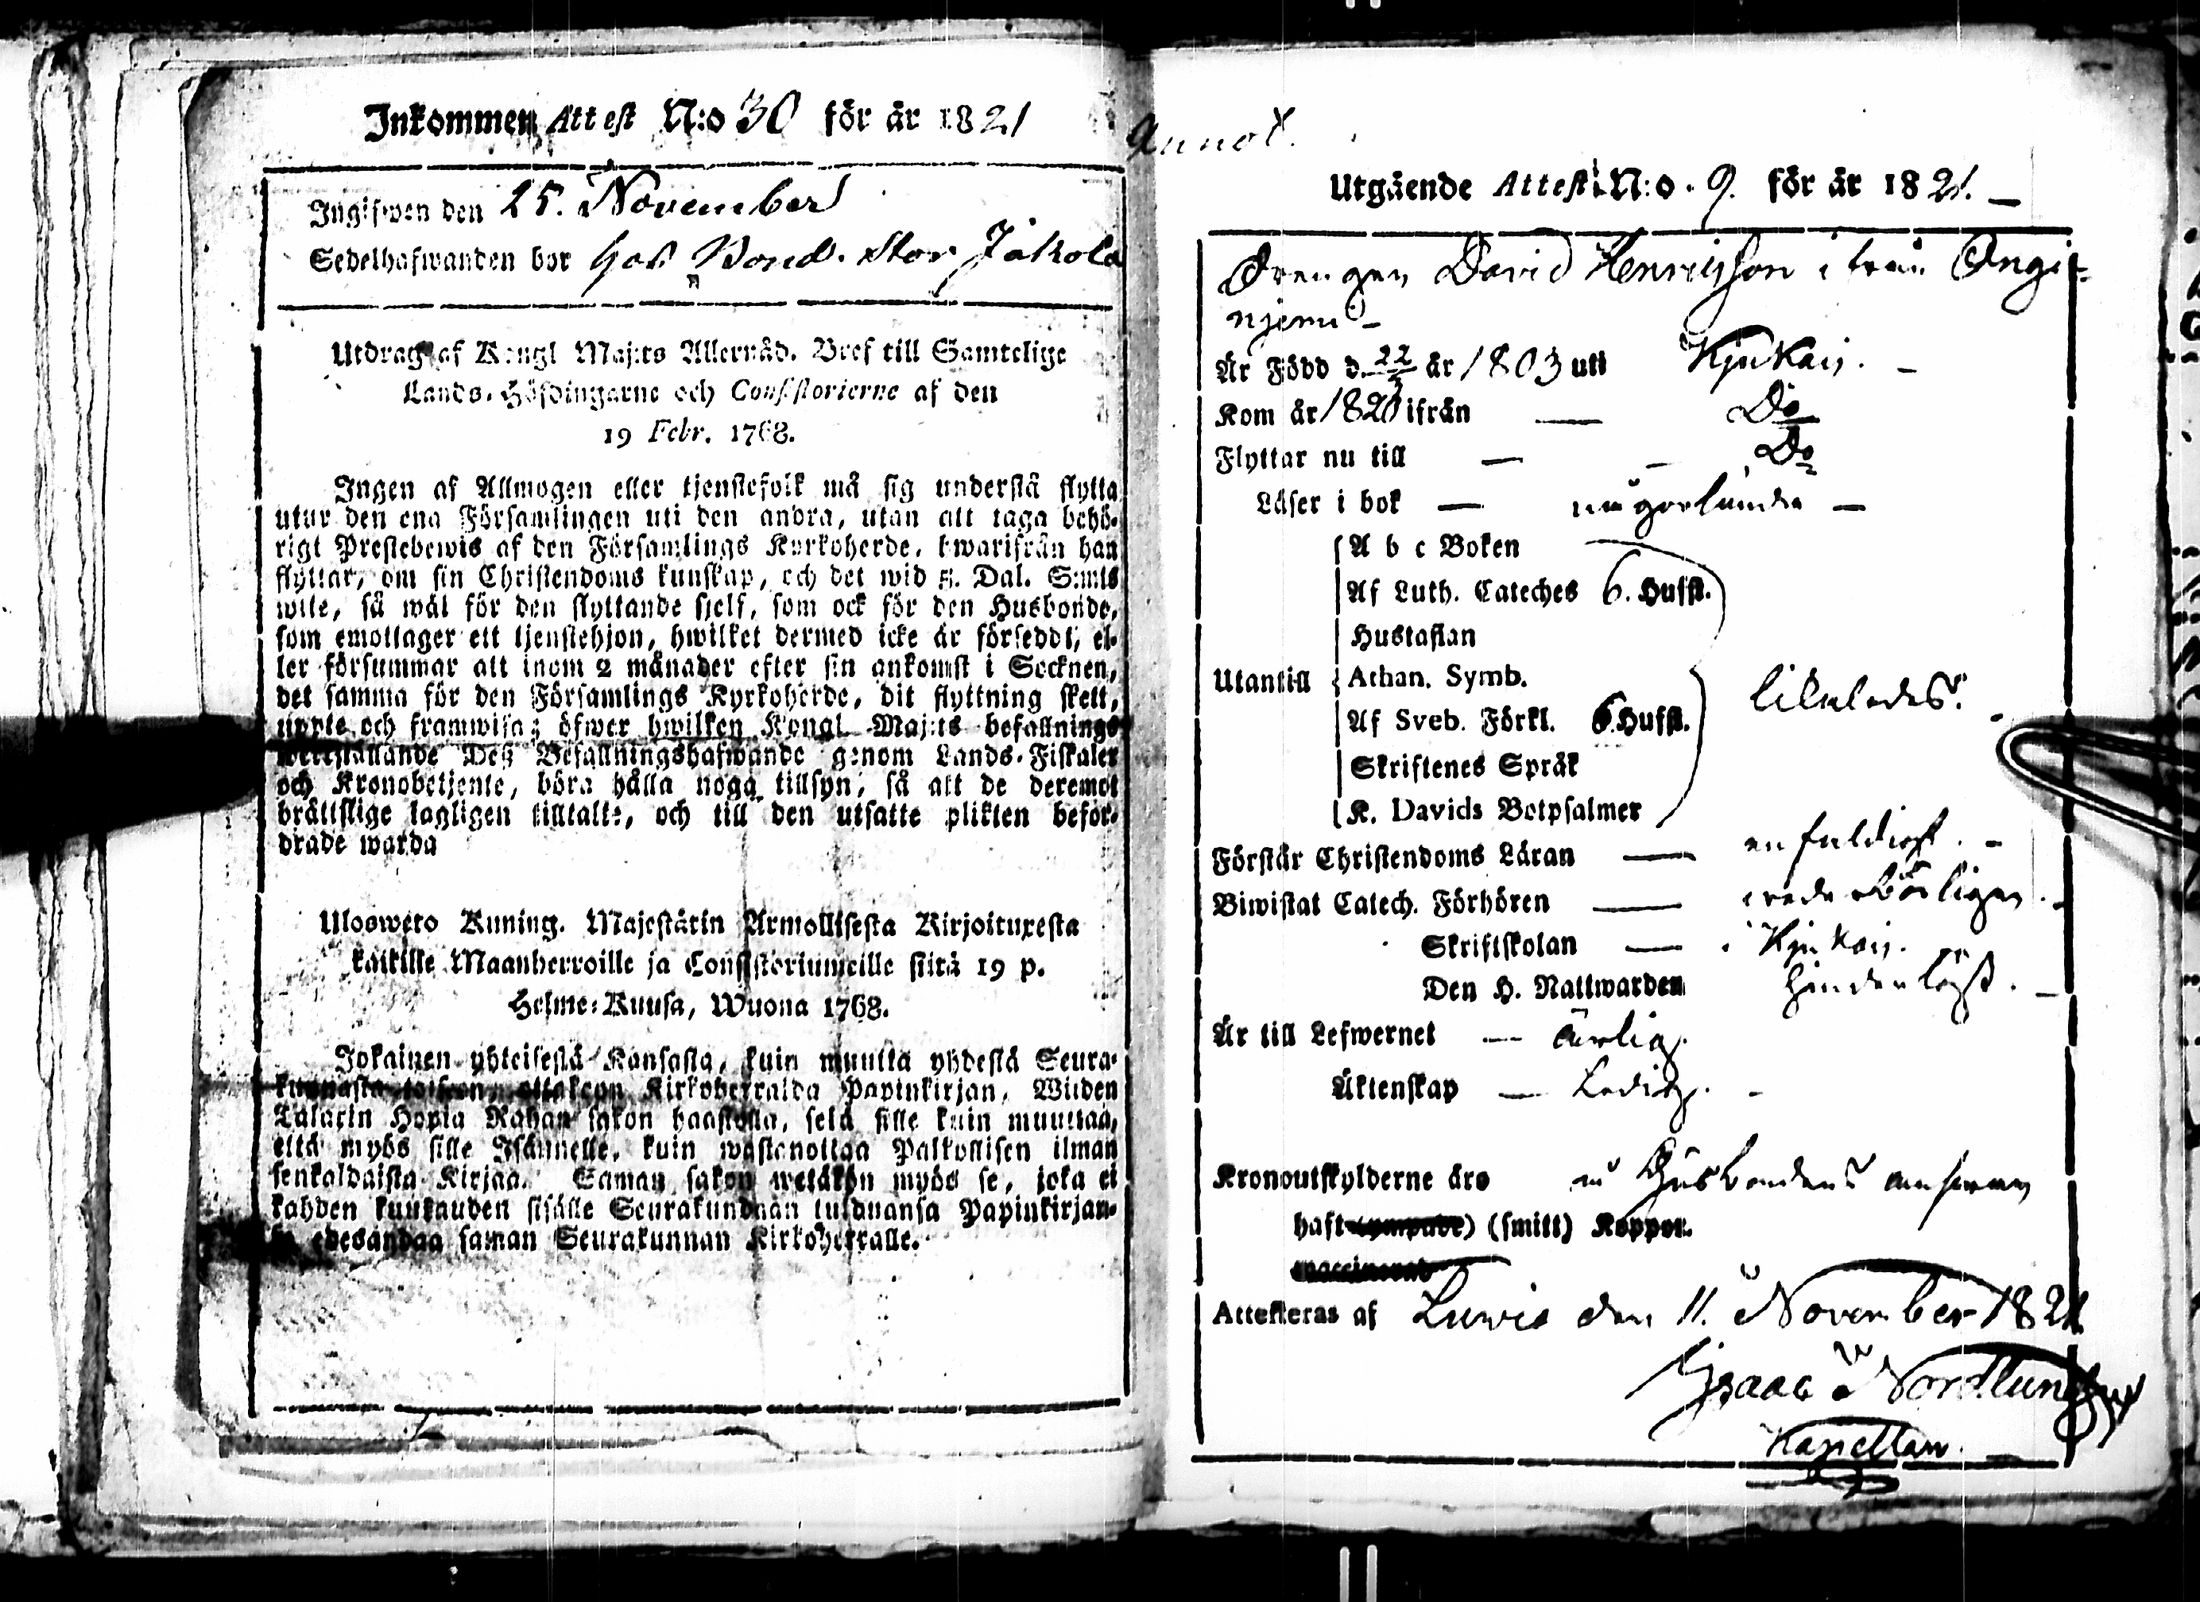 Inkommen Attest N:o 30 för år 1821
Ingifwen den 25. November
Sedelhafwanden bor hos Bond. Stor Jakola
Utdrag af Kongl Maj:ts Allernåd. Bref till Samtelige
Lands-Höfdingarne och Consistorierne af den
19 Febr. 1768.
Ingen af Allmogen eller tjenstefolk må sig understå flytta
utur den ena Församlingen uti den andra, utan att taga behö-
rigt Prestebewis af den Församlings Kyrkoherde, hwarifrån han
flyttar, om sin Christendoms kunskap, och det wid Dal. S:mts
wite, så wäl för den flyttande sjelf, som ock för den Husbonde,
som emottager ett tjenstehjon, hwilket dermed icke är försedt, el-
ler försummar att inom 2 månader efter sin ankomst i Socknen,
det samma för den Församlings Kyrkoherde, dit flyttning skett,
uppte och framwisa; öfwer hwilken Kongl. Maj:ts befallnings
werkställande Deß Befallningshafwande genom Lands-Fiskaler
och Kronobetjente, böra hålla noga tillsyn, så att de deremot
brättslige lagligen tilltalte, och till den utsatte plikten befor-
drade warda
Ulosweto Kuning. Majestätin Armollisesta Kirjoituxesta
kaikille Maanherroille ja Consistoriumeille siitä 19 p.
Helme-Kuusa, Wuona 1768.
Jokainen yhteisestä Kansasta, kuin muutta yhdestä Seura-
kunnasta toiseen, ottakoon Kirkoherralda Papinkirjan, Wiiden
Talarin Hopia Rahan sakon haastolla, sekä sille kuin muuttaa,
että myös sille Isännelle, kuin wastanottaa Palkollisen ilman
senkaldaista Kirjaa. Saman sakon wetäkön myös se, joka ei
kahden kuukauden sisälle Seurakundaan tulduansa Papinkirjan-
sa edesandaa saman Seurakunnan Kirkoherralle.
Annot.
Utgående Attest N:o 9. för år 1821.
Drengen David Henricsson ifrån Ångi-
njemi
Är Född d. 22/3 år 1803 uti Kjukais.
Kom år 1820 ifrån Do
Flyttar nu till Do
Läser i bok någorlunda
A b c Boken
Af Luth. Cateches 6. Hufst.
Hustaflan
Utantill Athan. Symb. likaledes.
Af Sveb. Förkl. 6. Hufst.
Skriftenes Språk
K. Davids Botpsalmer
Förstår Christendoms Läran enfaldigt.
Biwistat Catech. Förhören
Skriftskolan i Kjukais.
Den H. Nattwarden hinderlöst.
Är till Lefwernet ärlig.
Äktenskap Ledig.
Kronoutskylderne äro på Husbondens answar
haft (ympade) (smitt) Koppor.
vaccinerad
Attesteras af Luvia den 11. November 1821.
Isaac Nordlund
Kapellan.